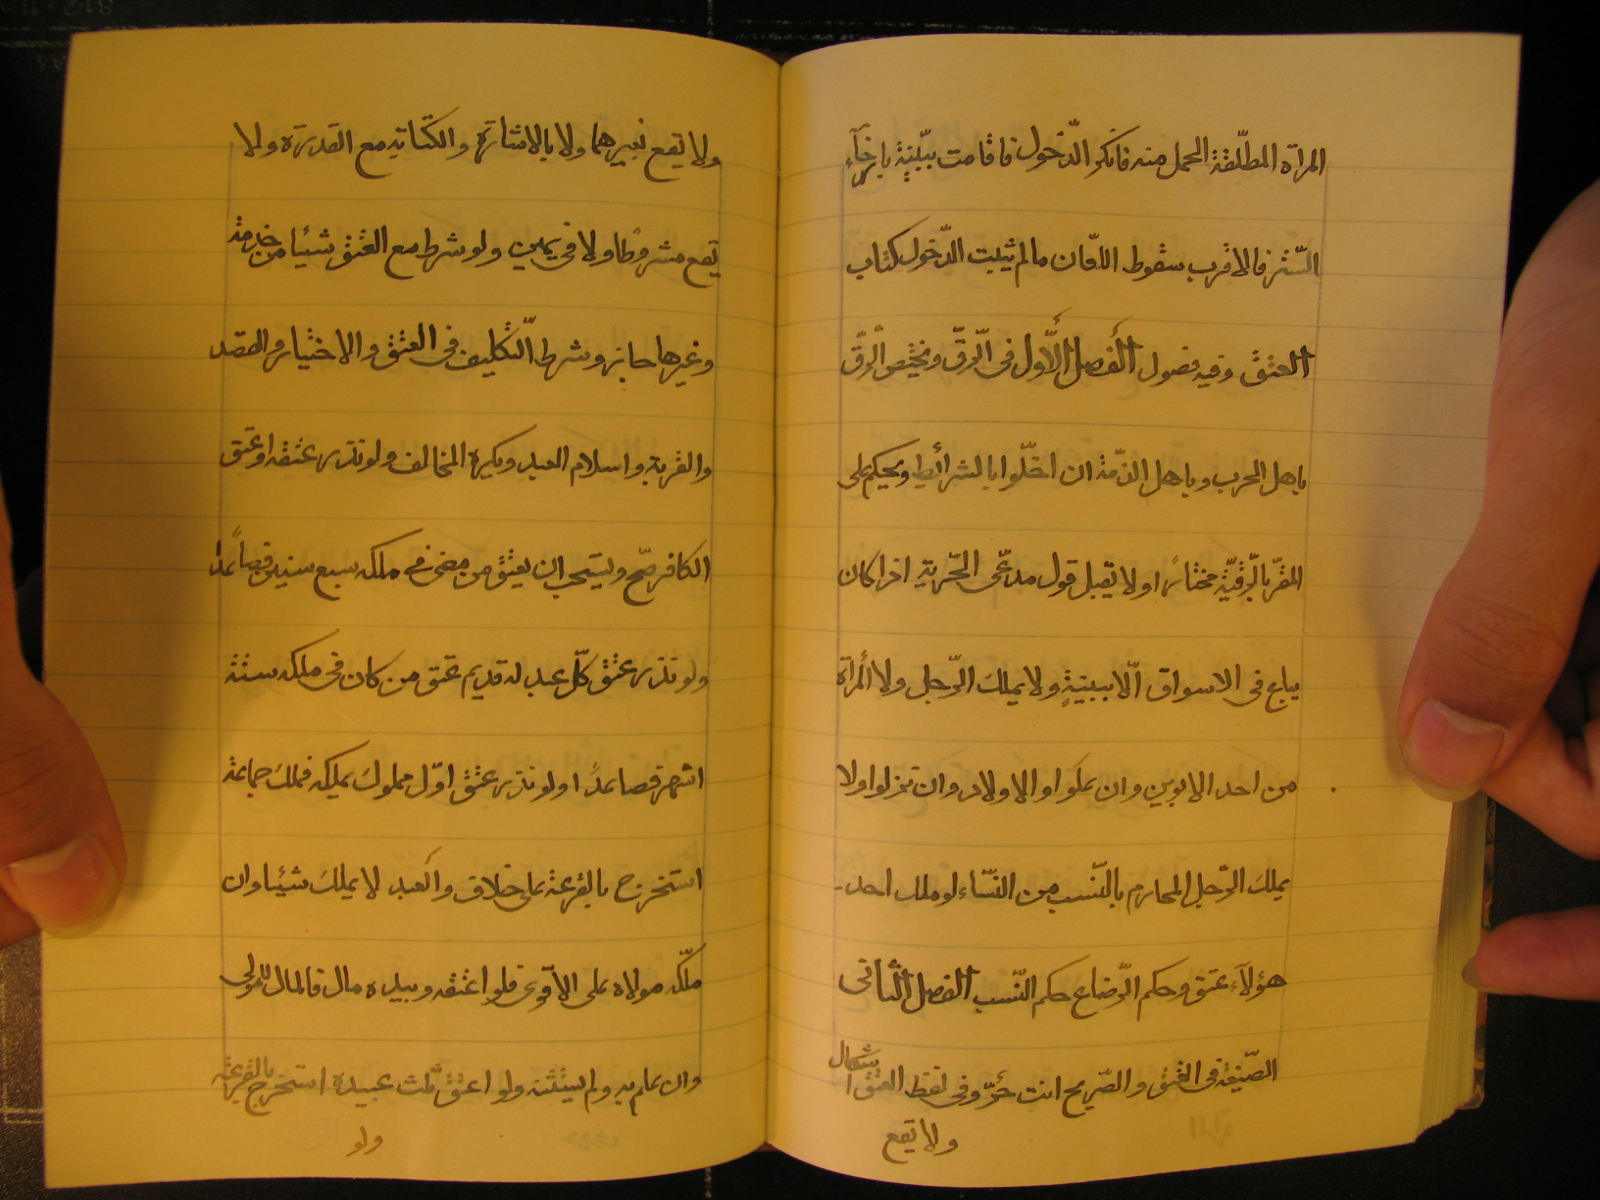 المرأة المطلّقة الحمل منه فانكر الدّخول فاقامت ببيّنة بارخآء
السّتر فالاقرب سقوط اللعان مالم يثبت الدّخول كتاب
العتق وفيه فصول الفصل الأوّل فى الرّقّ ويختصّ الرّق
باهل الحرب و باهل الذمّة ان اخلّوا بالشرائط ويحكم على
المقرّ بالرّقيّة مختارًا ولا يقبل قول مدعّى الحّرية اذا كان
يباع فى الاسواق الّا ببينةٍ ولا يملك الرّجل ولا المرأة
من احد الابوين وان علوا والاولاد وان نزلوا ولا
يملك الرّجل المحارم بالنّسب من النّساء لو ملك احد
هؤلآء عتق وحكم الرّضاع حكم النّسب الفصل الثانى
الصّيغة فى العتق والصّريح انت حُرّ وفى لفظ العتق اشكال
ولا يقع
ولا يقع بغيرهما ولا بالاشارة والكتابة مع القدرة ولا
يقع مشروطا ولا فى يمين ولو شرط مع العتق شيئا من خدمة
وغيرها جاز وشرط التّكليف فى العتق والاختيار والقصد
والقربة واسلام العبد ويكره المخالف ولو نذر عتقه او عتق
الكافر صّح ويستحب ان يعتق من مضى فى ملكه سبع سنين فصاعدًا
ولو نذر عتق كلّ عبد له قديم عتق من كان فى ملكه ستة
اشهر فصاعدًا ولو نذر عتق اوّل مملوك يملكه فملك جماعة
استخرج بالقرعة على خلاف والعبد لا يملك شيئا وان
ملّكه مولاه على الأقوى فلو اعتقه وبيده مال فالمال للمولى
وان علم به ولم يستثنه ولو اعتق ثلث عبيده استخرج بالقرعة
ولو